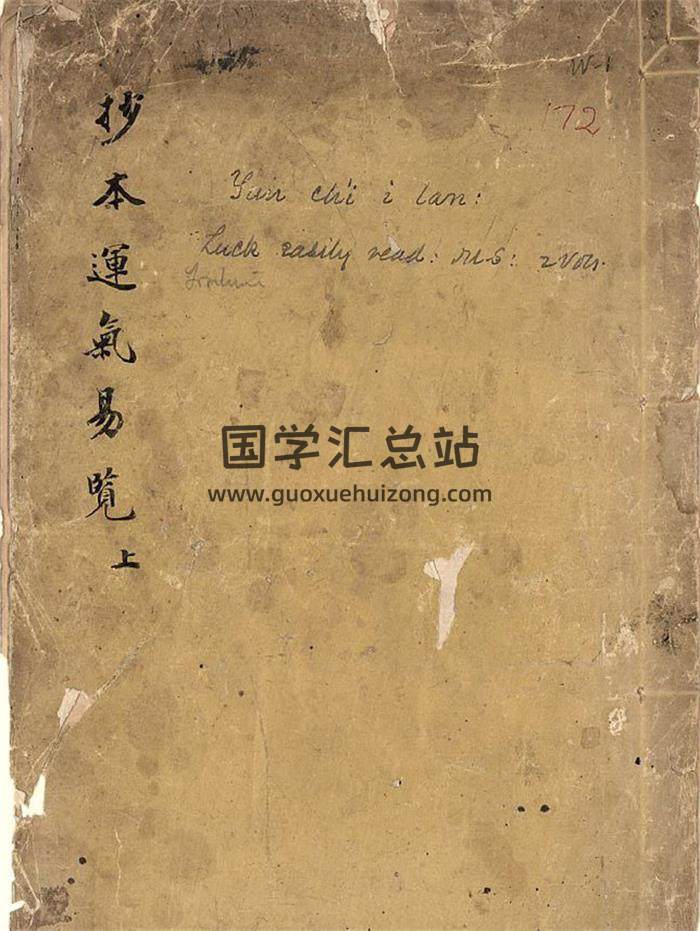 抄本運氣易覧 上
W-1
172
Yün ch'i i lan:
Luck easily read: MS: 2 vols.
Fortune
国学汇总站
www.guoxuehuizong.com